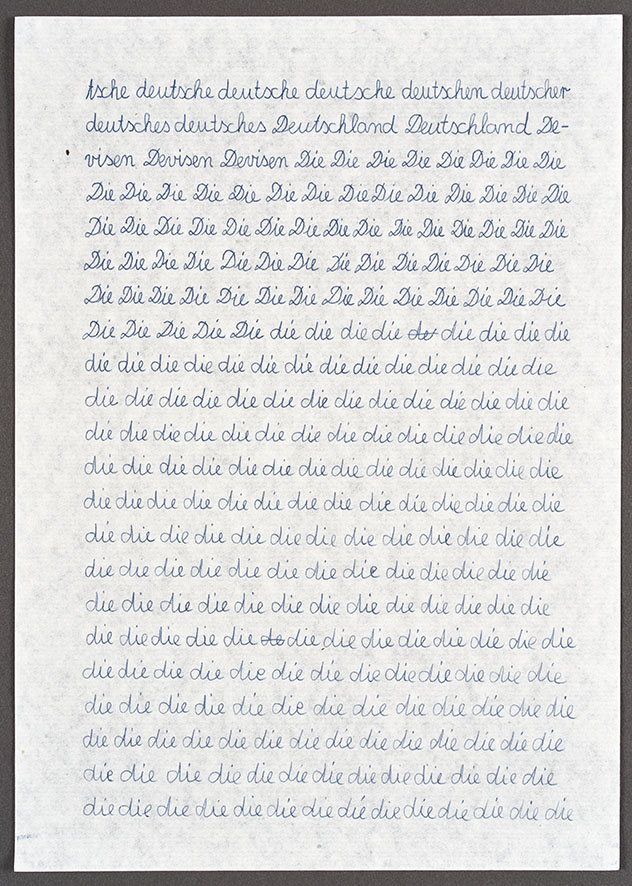 tsche deutsche deutsche deutsche deutschen deutscher
deutsches deutsches Deutschland Deutschland De-
visen Devisen Devisen Die Die Die Die Die Die Die Die
Die Die Die Die Die Die Die Die Die Die Die Die Die Die
Die Die Die Die Die Die Die Die Die Die Die Die Die Die
Die Die Die Die Die Die Die Die Die Die Die Die Die Die
Die Die Die Die Die Die Die Die Die Die Die Die Die Die
Die Die Die Die Die die die die die die die die die
die die die die die die die die die die die die die die
die die die die die die die die die die die die die die
die die die die die die die die die die die die die die
die die die die die die die die die die die die die die
die die die die die die die die die die die die die die
die die die die die die die die die die die die die die
die die die die die die die die die die die die die
die die die die die die die die die die die die die
die die die die die die die die die die die die die
die die die die die die die die die die die die die die
die die die die die die die die die die die die die die
die die die die die die die die die die die die die die
die die die die die die die die die die die die die
die die die die die die die die die die die die die die